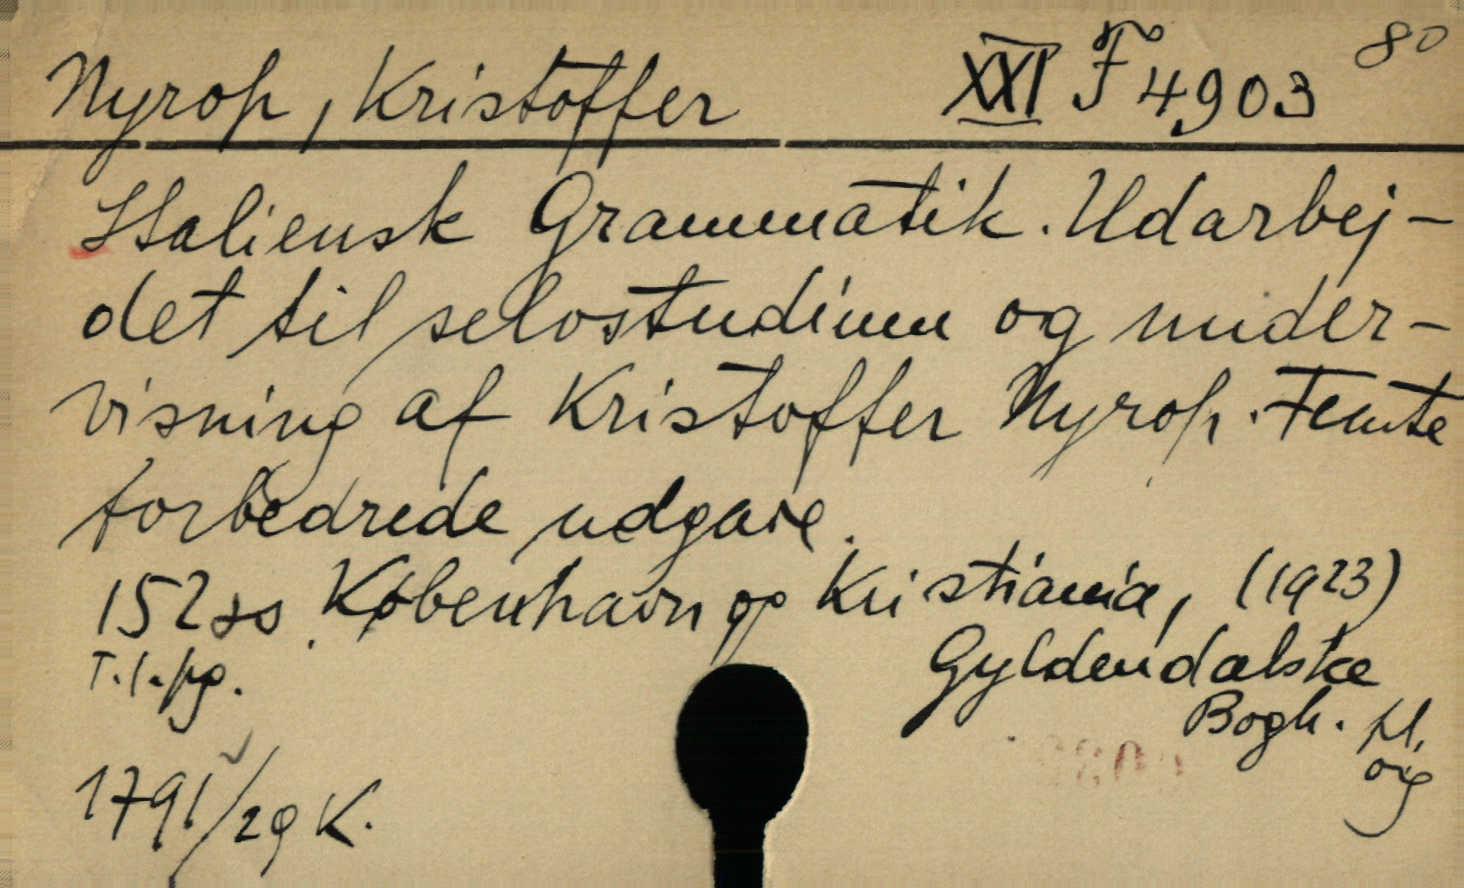 Nyrop, Kristoffer XXI F 4903 80
Italiensk Grammatik. Udarbej-
det til selvstudium og under-
visning af Kristoffer Nyrop. Femte
forbedrede udgave.
152 ss. København og Kristiania, (1923)
T. l. pg. Gyldendalske
Bogh. pł.
oryg
1791/29 K.